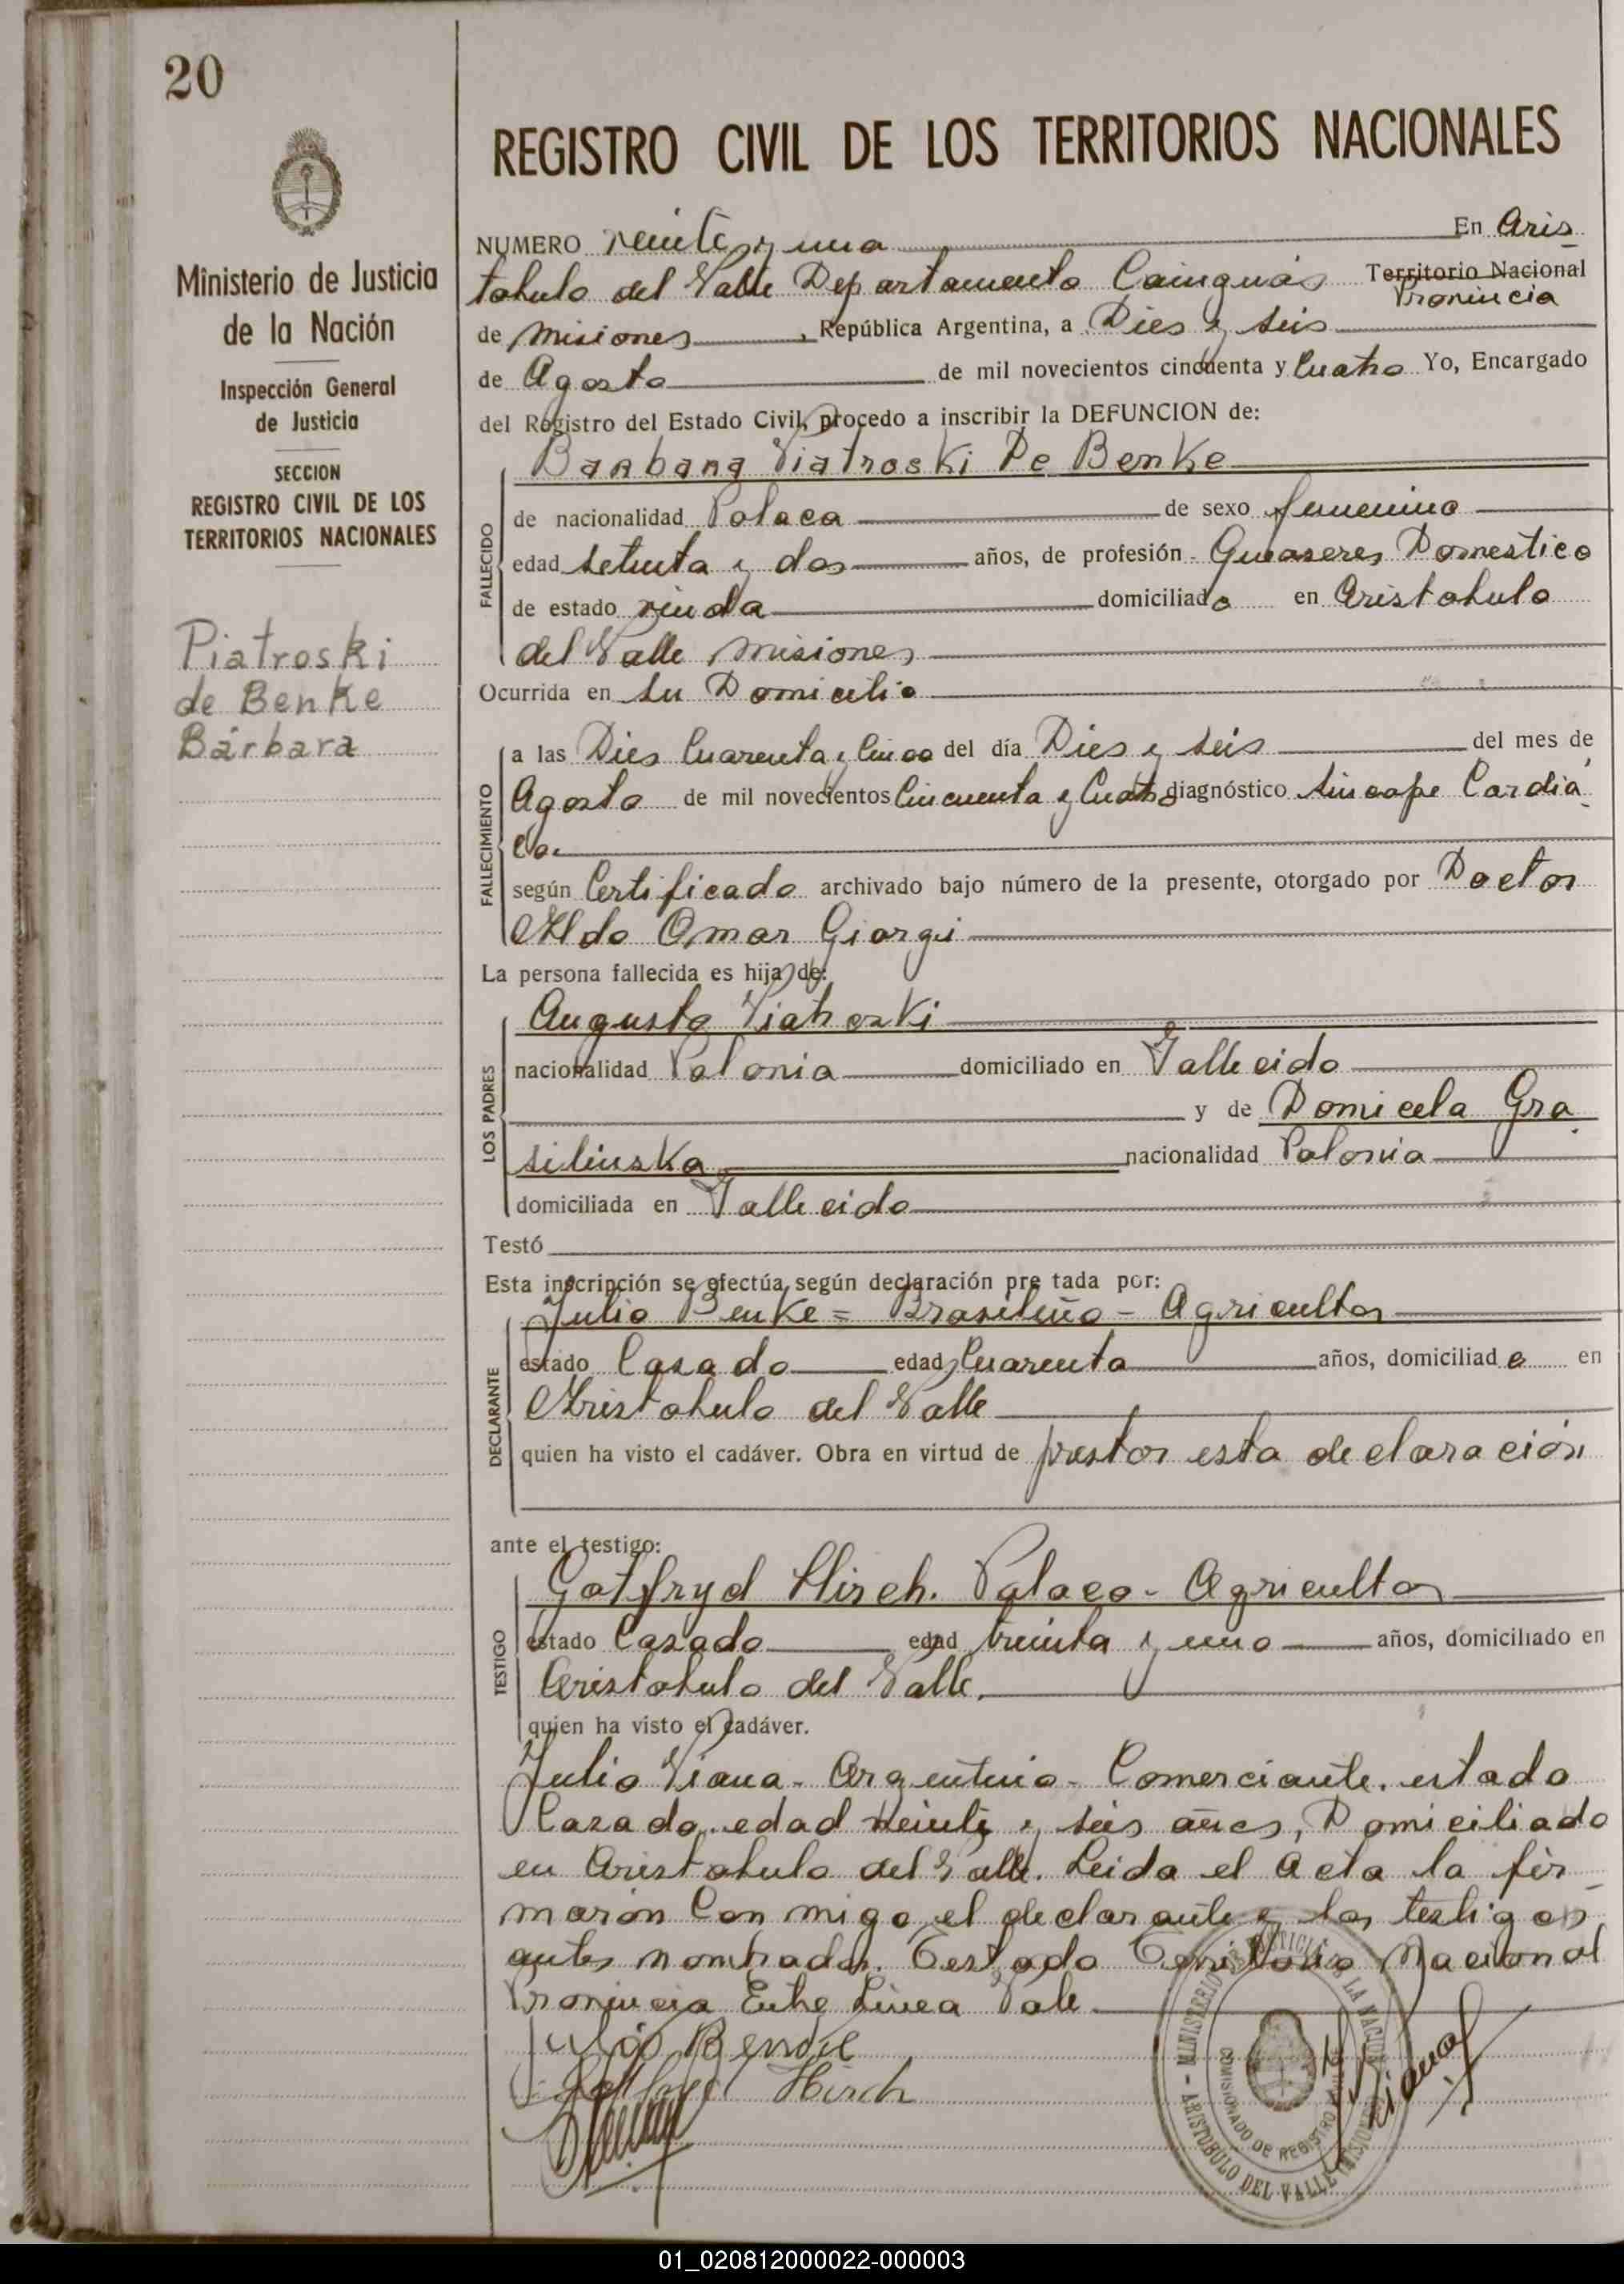 20
Ministerio de Justicia
de la Nación
Inspección General
de Justicia
SECCION
REGISTRO CIVIL DE LOS
TERRITORIOS NACIONALES
Piatroski
de Benke
Bárbara
REGISTRO CIVIL DE LOS TERRITORIOS NACIONALES
NUMERO veinte y una En Aris
tobulo del Valle Departamento Cainguás Territorio Nacional
Provincia
de Misiones, República Argentina, a Dies y seis
de Agosto de mil novecientos cincuenta y Cuatro Yo, Encargado
del Registro del Estado Civil, procedo a inscribir la DEFUNCION de:
Barbara Piatroski De Benke
FALLECIDO
de nacionalidad Polaca de sexo femenino
edad setenta y dos años, de profesión Queaseres Domestico
de estado viuda domiciliada en Aristobulo
del Valle Misiones
Ocurrida en su Domicilio
FALLECIMIENTO
a las Dies Cuarenta y Cinco del día Dies y seis del mes de
Agosto de mil novecientos Cincuenta y Cuatro diagnóstico Sincope Cardia
co.
según Certificado archivado bajo número de la presente, otorgado por Doctor
Aldo Omar Giorgi
La persona fallecida es hija de:
LOS PADRES
Augusto Piatroski
nacionalidad Polonia domiciliado en Fallecido
y de Domicela Gra
silinska nacionalidad Polonia
domiciliada en Fallecido
Testó
Esta inscripción se efectúa según declaración pre tada por:
DECLARANTE
Julio Benke = Brasileño - Agricultor
estado Casado edad Cuarenta años, domiciliado en
Aristobulo del Valle
quien ha visto el cadáver. Obra en virtud de prestar esta declaración
ante el testigo:
TESTIGO
Gotfryd Hirch. Polaco - Agricultor
estado Casado edad treinta y uno años, domiciliado en
Aristobulo del Valle.
quien ha visto el cadáver.
Julio Viana - Argentino - Comerciante. estado
Casado. edad veinte y seis años, Domiciliado
en Aristobulo del Valle. Leida el Acta la fir
maron Con migo, el declarante y los testigos
antes nombrados. Testado Territorio Nacional
Provincia Entre Linea Vale.
Julio Benke
Gottfryd Hirch
MINISTERIO DE JUSTICIA DE LA NACION - ARISTOBULO DEL VALLE (MISIONES)
COMISIONADO DE REGISTRO
01_020812000022-000003